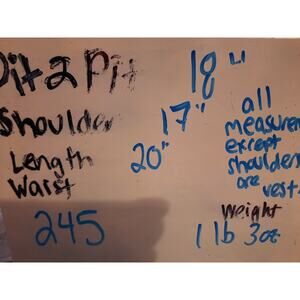 Pit 2 Pit 18"
Shoulder 17"
Length 20"
Waist
245
all
measurem
except
shoulders
are vest
Weight
1 lb 3oz